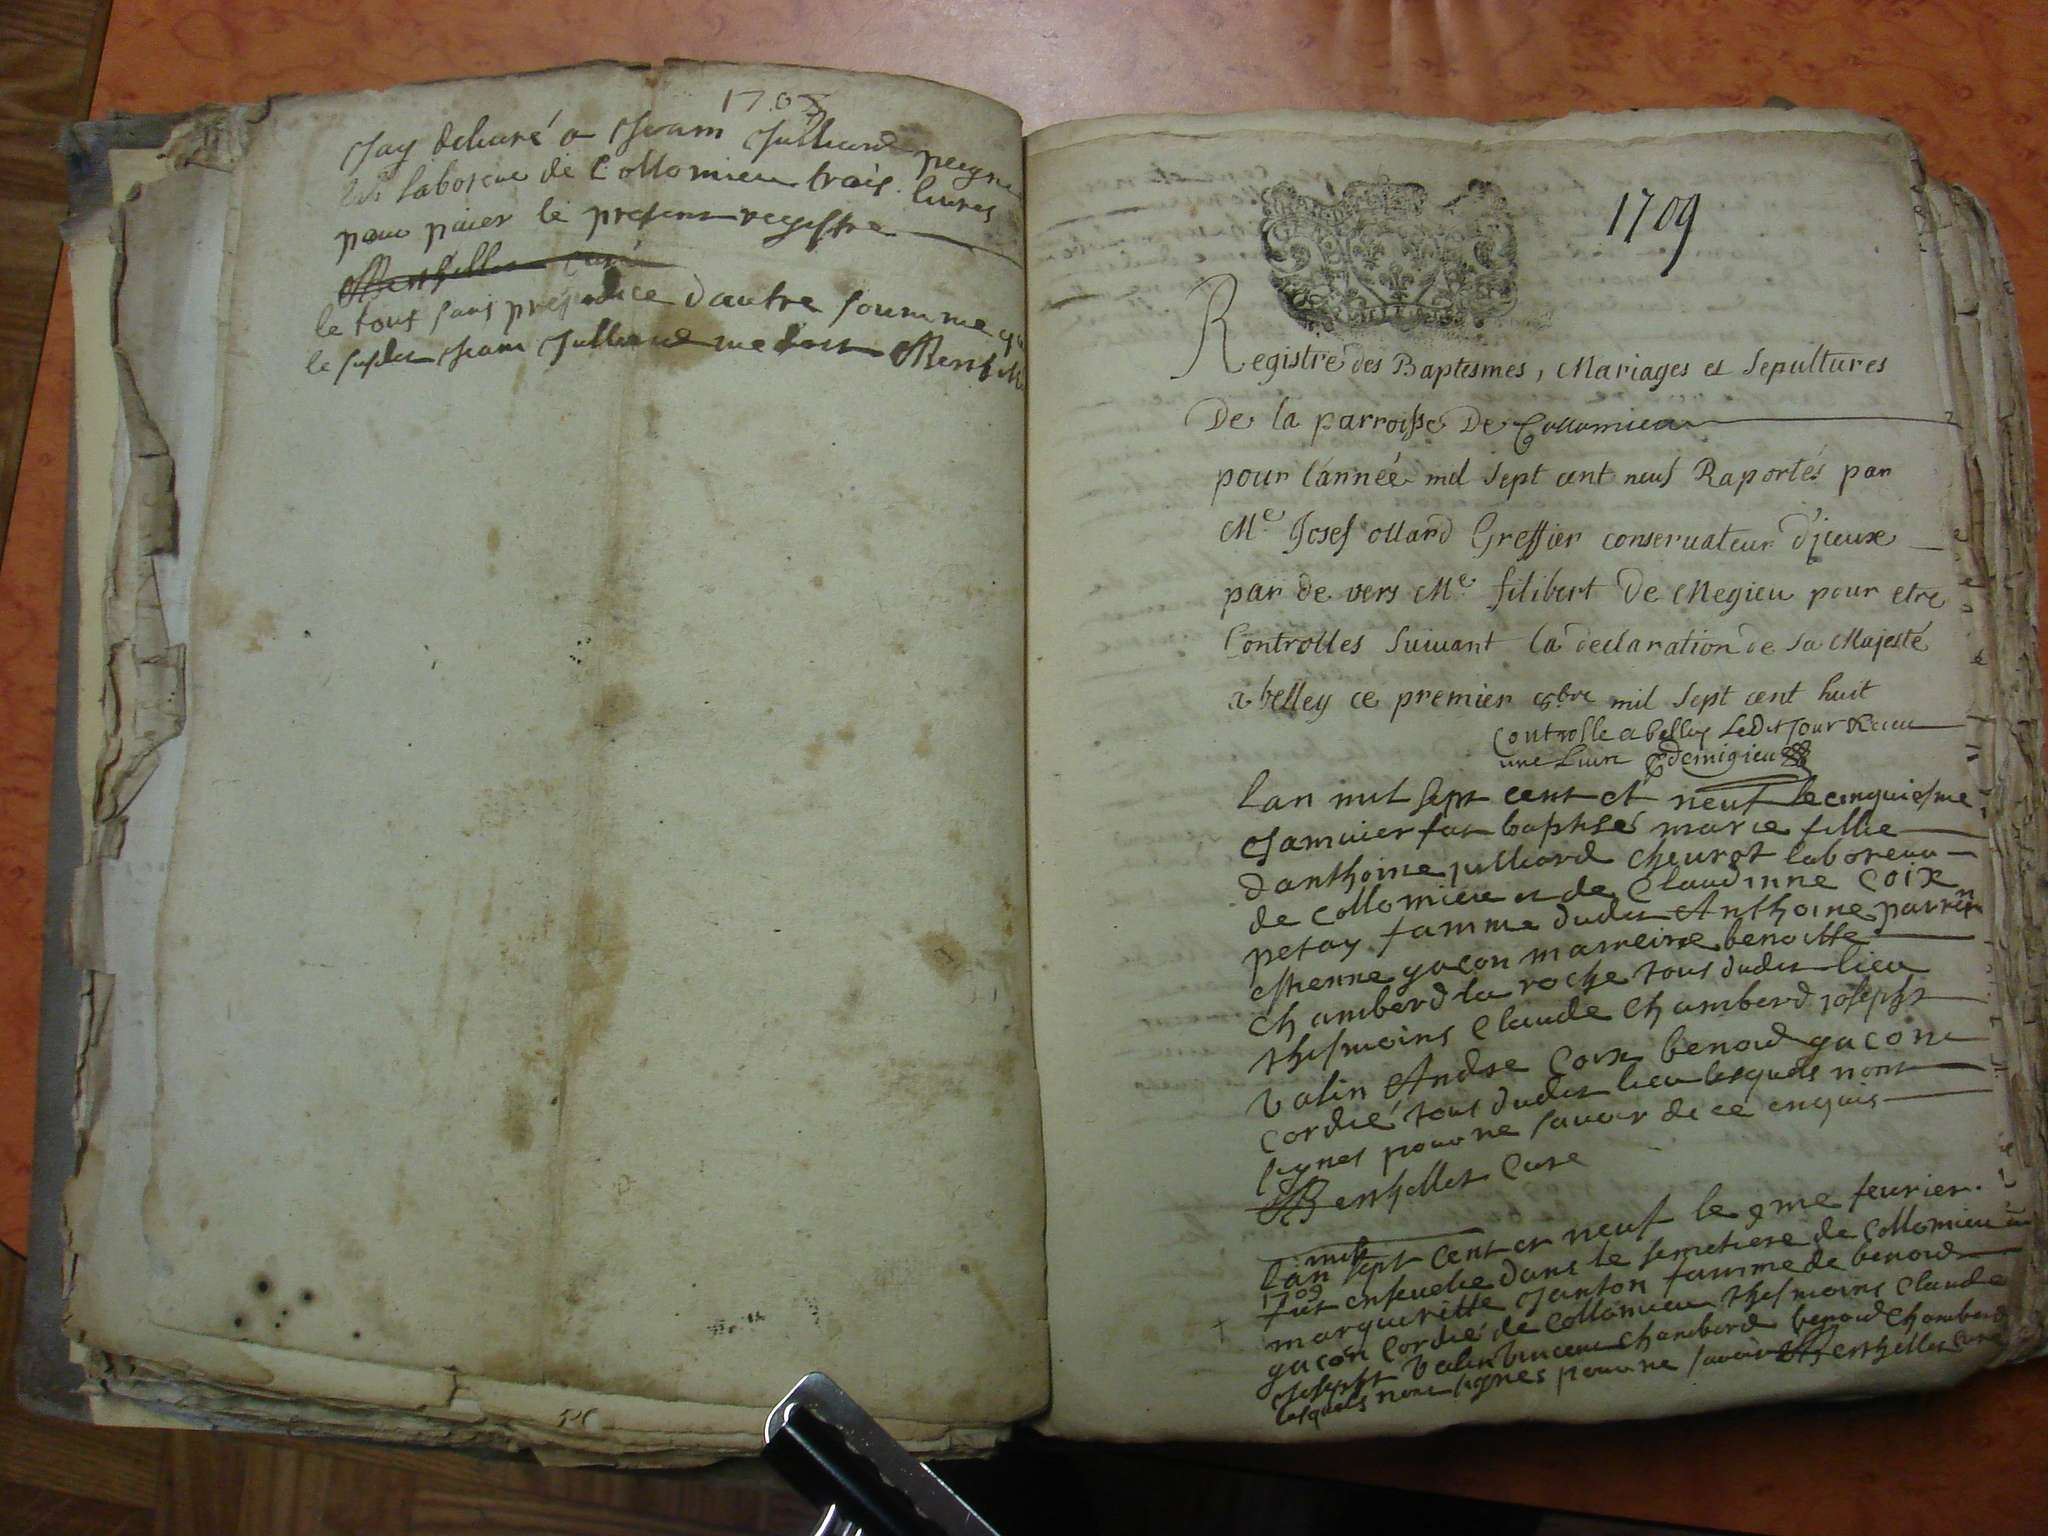 1708
Jay deliuré a Jean Julliard peigne
laboreur de Collomieu trois liures
pour paier le present registre
Berthillier curé
le tout sans prejudice dautre soumme q
le susdit Jean Julliard me doit Berthill
1709
Registre des Baptesmes, Mariages et Sepultures
De la parroisse De Collomieu
pour l'année mil sept cent neuf Raportés par
Me Josef ollard Greffier conseruateur d'jceux
par de vers Me filibert De Megieu pour etre
Controlles suiuant la declaration de sa Majesté
a belley ce premier 8bre mil sept cent huit
Controlle a belley Ledit Jour Receu
une Liure Demigieu
lan mil sept cent et neuf le cinquiesme
Januier fut baptisé marie fillie
danthoine julliard cheurot laboreur
de collomieu et de Claudinne Coix
petay famme dudit Anthoine parrein
estienne gacon marreine benoitte
chamberd la roche tous dudit lieu
thesmoins Claude Chamberd joseph
valin Andre Coix benoid gacon
cordié tous dudit lieu lesquels nont
signes pour ne sauoir de ce enquis
Berthillier Cure
mil
lan sept cent et neuf le 9me feurier
1709
fut enseuelie dans le semetiere de collomieu
margueritte Janton famme de benoid
gacon Cordié de Collomieu thesmoins Claude
Joseph valin vincent chamberd benoid Chamberd
lesquels nont signes pour ne sauoir Berthillier Cure
526